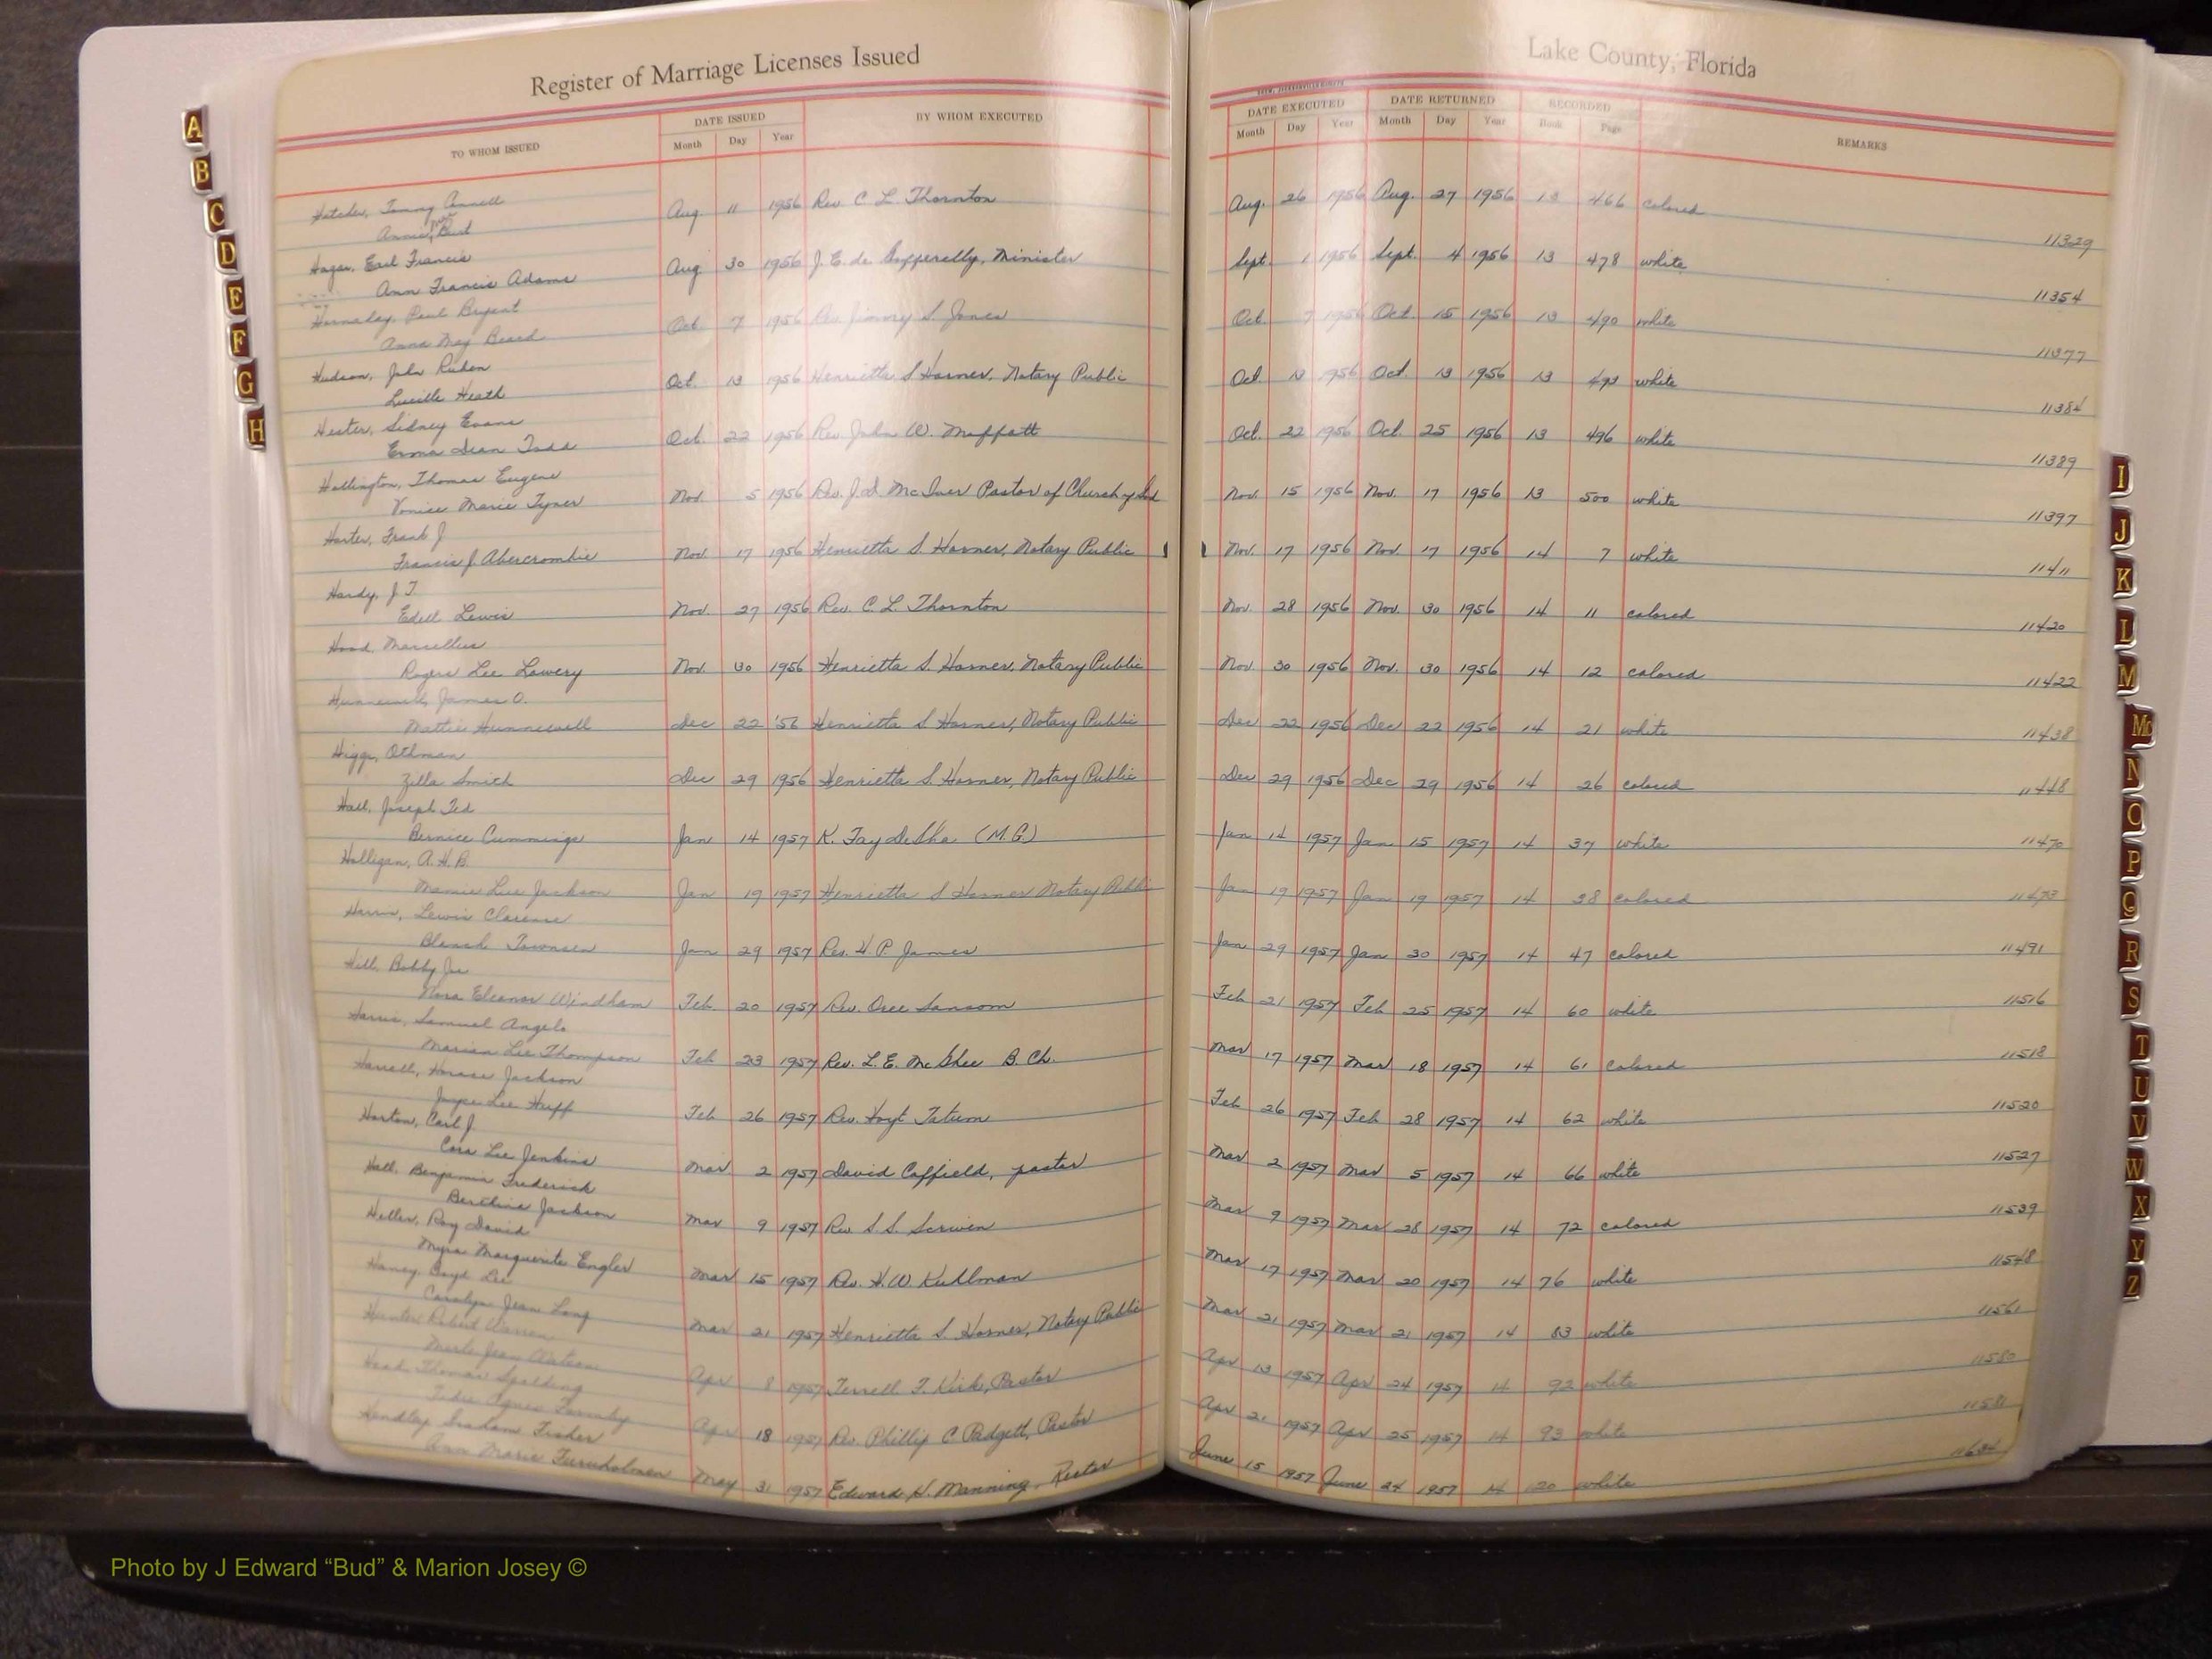 Register of Marriage Licenses Issued
Lake County, Florida
TO WHOM ISSUED
DATE ISSUED
Month Day Year
BY WHOM EXECUTED
DATE EXECUTED
Month Day Year
DATE RETURNED
Month Day Year
RECORDED
Book Page
REMARKS
Hatcher, Tommy
Annie Burt
Aug 11 1956 Rev C. L. Thornton Aug. 26 1956 Aug. 27 1956 13 466 colored 11329
Hagar, Earl Francis
Ann Francis Adams
Aug 30 1956 J. E. de Minister Sept. 1 1956 Sept. 4 1956 13 478 white 11354
Hornsby, Paul Bryant
Anna May Beard
Oct. 7 1956 Rev Jimmy S. Jones Oct. 7 1956 Oct. 15 1956 13 490 white 11377
Hudson, John Ruben
Lucille Heath
Oct. 13 1956 Henrietta S Harner, Notary Public Oct. 13 1956 Oct. 13 1956 13 493 white 11384
Hester, Sidney Evans
Erma Dean Todd
Oct. 22 1956 Rev. John W. Moffatt Oct. 22 1956 Oct. 25 1956 13 496 white 11389
Thomas Eugene
Vonice Marie Tyner
Nov. 5 1956 Rev. Pastor of Church of God Nov. 15 1956 Nov. 17 1956 13 500 white 11397
Harter, Frank J
Francis J. Abercrombie
Nov. 17 1956 Henrietta S. Harner, Notary Public Nov. 17 1956 Nov. 17 1956 14 7 white 11411
Hardy, J. T.
Edell Lewis
Nov. 27 1956 Rev. C. L. Thornton Nov. 28 1956 Nov. 30 1956 14 11 colored 11420
Hood, Marcellus
Rogers Lee Lowery
Nov. 30 1956 Henrietta S. Harner, Notary Public Nov. 30 1956 Nov. 30 1956 14 12 colored 11422
Hunnewell, James O.
Mattie Hunnewell
Dec 22 '56 Henrietta S Harner, Notary Public Dec 22 1956 Dec 22 1956 14 21 white 11438
Higgs, Othman
Zilla Smith
Dec 29 1956 Henrietta S. Harner, Notary Public Dec 29 1956 Dec 29 1956 14 26 colored 11448
Hall, Joseph Ted
Bernice Cummings
Jan 14 1957 K. Fay DeSha (M.G.) Jan 14 1957 Jan 15 1957 14 37 white 11470
Holligan, A. H. B.
Mamie Lee Jackson
Jan 19 1957 Henrietta S Harner Notary Public Jan 19 1957 Jan 19 1957 14 38 colored 11473
Harris, Lewis Clarence
Blanch Townsen
Jan 29 1957 Rev. H. P. James Jan 29 1957 Jan 30 1957 14 47 colored 11491
Hill, Bobby Joe
Nora Eleanor Windham
Feb 20 1957 Rev. Oree Sansom Feb 21 1957 Feb 25 1957 14 60 white 11516
Harris, Samuel Angelo
Marian Lee Thompson
Feb 23 1957 Rev. L. E. McGhee B. Ch. Mar 17 1957 Mar 18 1957 14 61 colored 11518
Harrell, Horace Jackson
Joyce Lee Huff
Feb 26 1957 Rev. Hoyt Tatum Feb 26 1957 Feb 28 1957 14 62 white 11520
Horton, Carl J.
Cora Lee Jenkins
Mar 2 1957 David Coffield, pastor Mar 2 1957 Mar 5 1957 14 66 white 11527
Hall, Benjamin Frederick
Berthina Jackson
Mar 9 1957 Rev S. S. Scriven Mar 9 1957 Mar 28 1957 14 72 colored 11539
Heller, Roy David
Myra Marguerite Engler
Mar 15 1957 Rev. H. W. Kullman Mar 17 1957 Mar 20 1957 14 76 white 11548
Haney, Boyd Lee
Carolyn Jean Long
Mar 21 1957 Henrietta S. Harner, Notary Public Mar 21 1957 Mar 21 1957 14 83 white 11561
Hunter, Robert Warren
Merle Jean Watson
Apr 8 1957 Terrell T. Kirk, Pastor Apr 13 1957 Apr 24 1957 14 92 white 11580
Hood, Thomas Spalding
Agnes
Apr 18 1957 Rev. Phillip C Padgett, Pastor Apr 21 1957 Apr 25 1957 14 93 white 11581
Hendley, Graham Fisher
Ann Marie Furuholmen
May 31 1957 Edward H. Manning, Rector June 15 1957 June 24 1957 14 120 white 11634
A
B
C
D
E
F
G
H
I
J
K
L
M
Mc
N
O
P
Q
R
S
T
U
V
W
X
Y
Z
Photo by J Edward “Bud” & Marion Josey ©